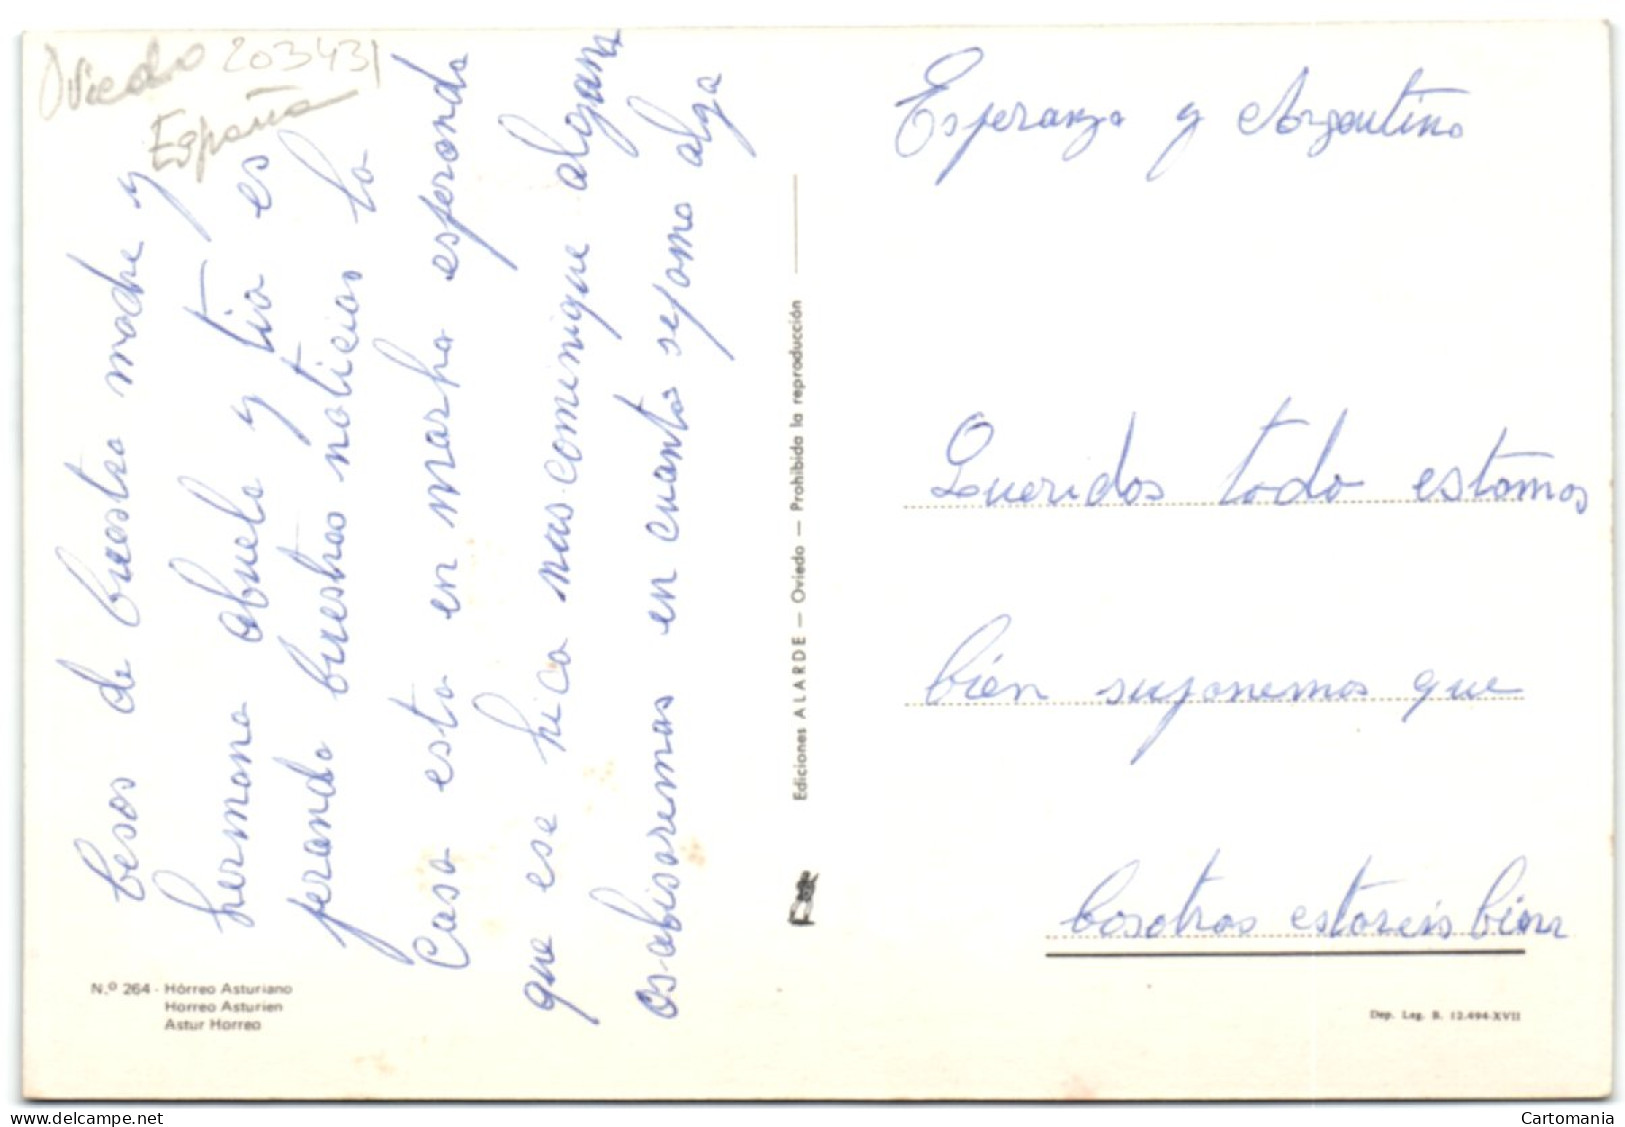 Oviedo 203431
España
Esperanza y Argentino
Queridos todo estamos
bién suponemos que
bosotros estareis bien
besos de buestra madre y
hermana abuela y tia es
perando buestras noticias la
Casa esta en marha esperando
que ese hica nas cominique algana
os abisaremas en cuanto sepama alga
Ediciones ALARDE — Oviedo — Prohibida la reproducción
N.º 264 - Hórreo Asturiano
Horreo Asturien
Astur Horreo
Dep. Leg. B. 12.494-XVII
Cartomania